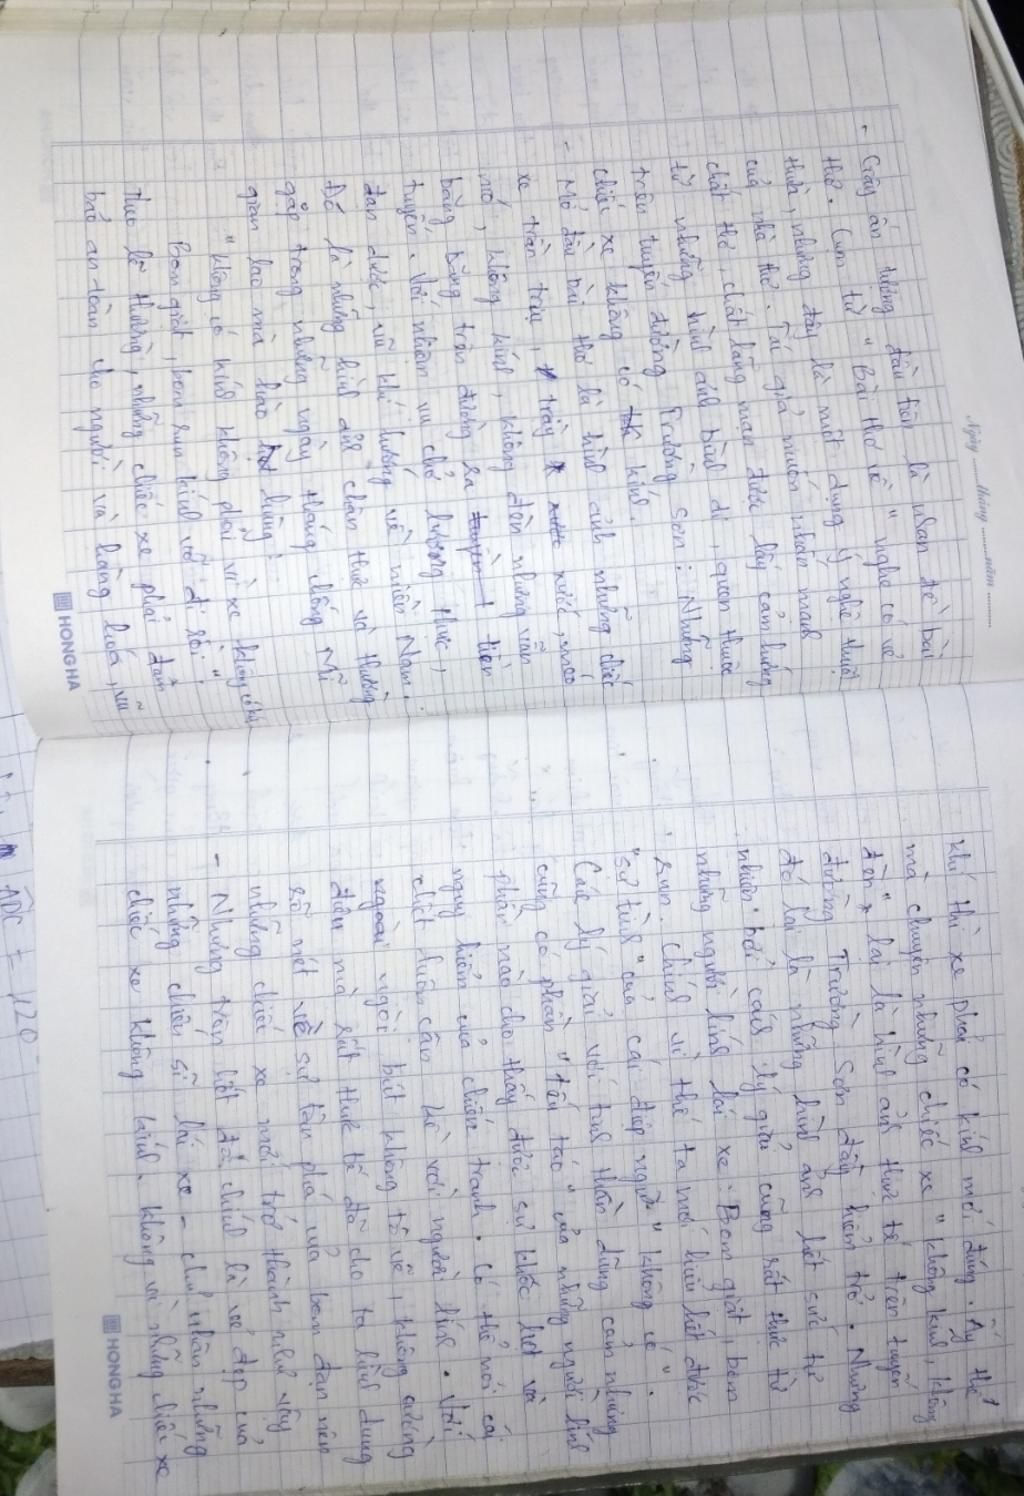 Ngày ........ tháng ........ năm ........
- Gây ấn tượng đầu tiên là nhan đề bài
thơ. Cụm từ "Bài thơ về" nghe có vẻ
thừa, nhưng đây là một dụng ý nghệ thuật
của nhà thơ. Tác giả muốn nhấn mạnh
chất thơ, chất lãng mạn được lấy cảm hứng
từ những hình ảnh bình dị, quen thuộc
trên tuyến đường Trường Sơn: Những
chiếc xe không có kính.
- Mở đầu bài thơ là hình ảnh những chiếc
xe trần trụi, trầy xước, méo
mó, không kính, không đèn nhưng vẫn
băng băng trên đường ra tiền
tuyến. Với nhiệm vụ chở lương thực,
đạn dược, vũ khí hướng về miền Nam.
Đó là những hình ảnh chân thực và thường
gặp trong những ngày tháng chống Mĩ
gian lao mà hào hùng:
"Không có kính không phải vì xe không có kính
Bom giật, bom rung kính vỡ đi rồi"
Theo lẽ thường, những chiếc xe phải đảm
bảo an toàn cho người và hàng hoá, vũ
HONG HA
khí thì xe phải có kính mới đúng. Ấy thế
mà chuyện những chiếc xe "không kính, không
đèn" lại là hình ảnh thực tế trên tuyến
đường Trường Sơn đầy hiểm trở. Những
đó lại là những hình ảnh hết sức tự
nhiên bởi cách lý giải cũng rất thực từ
những người lính lái xe: Bom giật, bom
rung. Chính vì thế ta mới hiểu hết được
"sự tình" của cái điệp ngữ "không có".
Các lý giải với tinh thần dũng cảm nhưng
cũng có phần "tếu táo" của những người lính
phần nào cho thấy được sự khốc liệt và
nguy hiểm của chiến tranh. Có thể nói cái
chết luôn cận kề với người lính. Với
ngòi bút không tô vẽ, không cường
điệu mà rất thực tế đã cho ta hình dung
rõ nét về sự tàn phá của bom đạn nên
những chiếc xe mới trở thành như vậy
- Nhưng trên hết đó chính là vẻ đẹp của
những chiến sĩ lái xe - chủ nhân những
chiếc xe không kính. Không và những chiếc xe
HONG HA
ADC = 120